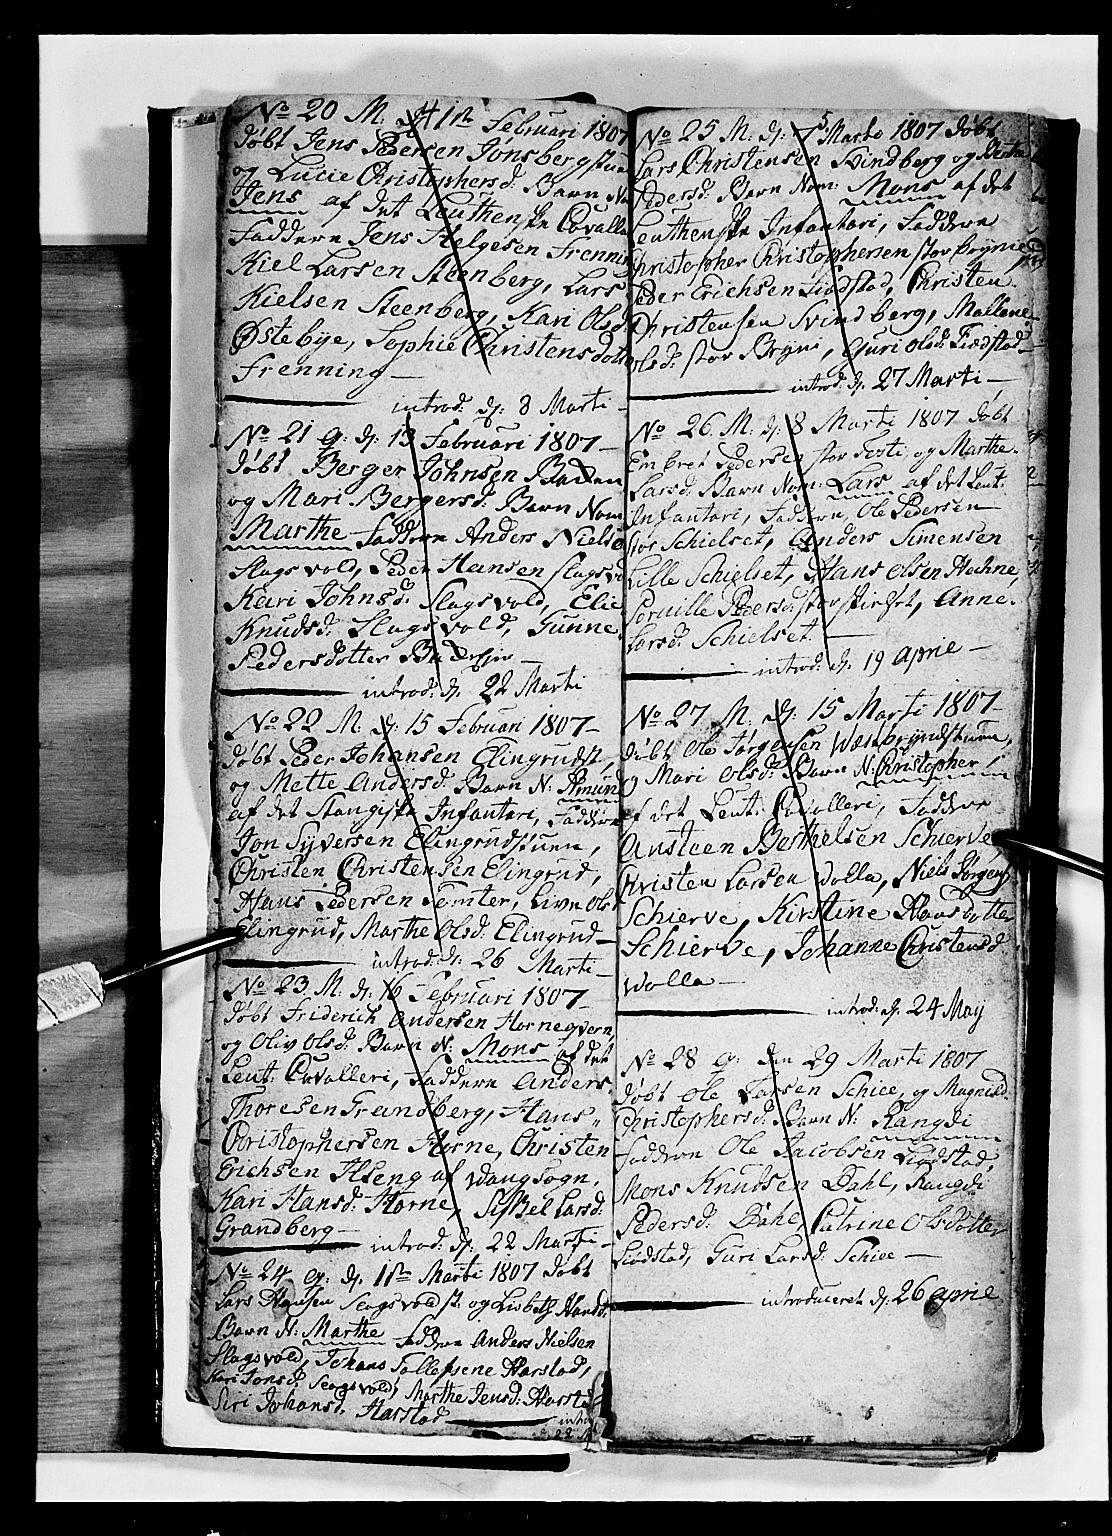 No 20 M. d. 1ste Februari 1807
døbt Jens Pedersen Jonsbergstuen
og Lucie Christophersd: Barn No
Jens af det Leuthenske Cavalle
Faddere Jens Helgesen Frenning
Kiel Larsen Steenberg, Lars
Kielsen Steenberg, Kari Olsd
Østebye, Sophie Christensdotte
Frenning —
introd: d: 8 Marti —
No 21 q: d: 13 Februari 1807 —
døbt Berger Johnsen Badden
og Mari Bergersd: Barn Nom
Marthe Faddere Anders Nielse
Slagsvold, Peder Hansen Slagsvo
Kari Johnsd: Slagsvold, Elie
Knudsd: Slagsvold, Gunne
Pedersdotter —
introd: d: 22 Marti
No 22 M. d: 15 Februari 1807 —
døbt Peder Johansen Elingrudst,
og Mette Andersd: Barn N: Amund
af det Stangiske Infantari, Faddere
Jon Syversen Elingrudstuen,
Christen Christensen Elingrud,
Hans Pedersen Temter, Live Ols
Elingrud, Marthe Olsd: Elingrud —
introd: d: 26 Marti —
No 23 M. d: 16 Februari 1807 —
døbt Friderich Andersen Horneqvern
og Oliv Olsd: Barn N: Mons af det
Leut: Cavalleri, Faddere Anders
Thoresen Grandberg, Hans
Christophersen Horne, Christen
Erichsen Ilseng af Vangsogn,
Kari Hansd: Horne, Sissel Larsd:
Grandberg —
introd: d: 22 Marti —
No 24 q: d: 1ste Marti 1807 døbt
Lars Hansen Slagsvoldst: og Lisbeth Hansd:
Barn N: Marthe Faddere Anders Nielsen
Slagsvold, Johans Tollefsene Harstad,
Kari Jonsd: Slagsvold, Marthe Jensd: Harstad
Siri Johansd: Harstad — intro
d: 22 M
No 25 M. d: 5 Marti 1807 døbt
Lars Christensen Svindberg og
Pedersd: Barn Nom: Mons af det
Leuthenske Infantari, Faddere
Christopher Christophersen stor brynie
Peder Erichsen Fiodstad, Christen
Christensen Svindberg, Mallene
Olsd: stor Bryni, Guri Olsd: Fiodstad —
introd: d: 27 Marti —
No 26 M. d: 8 Marti 1807 døbt
Embret Pedersen stor Festi, og Marthe
Larsd: Barn Nom: Lars af det Leut:
Infantari, Faddere, Ole Pedersen
stor Schielset, Anders Simensen
Lille Schielset, Hans Olsen Hochne,
Pernille Pedersd: stor, Anne
Larsd: Schielset —
introd: d: 19 Aprie —
No 27 M. d: 15 Marti 1807 —
døbt Ole Jørgensen Westbryndstuen,
og Mari Olsd: Barn N: Christopher,
af det Leut: Cavalleri, Faddere
Austeen Berthelsen Schierve,
Christen Larsen Wolla, Niels Jørgens
Schierve, Kirstine Hansdotter
Schierve, Johanne Christensd
Wolla —
introd: d: 24 May
No 28 q: den 29 Marti 1807
døbt Ole Larsen Schiee, og Magnild
Christophersd: Barn N: Rangdi
Faddere Ole Jacobsen Fiodstad,
Mons Knudsen Dahl, Rangdi
Pedersd: Dahl, Catrine Olsdotter
Fiodstad, Guri Larsd: Schiee —
introduceret d: 26 Aprie